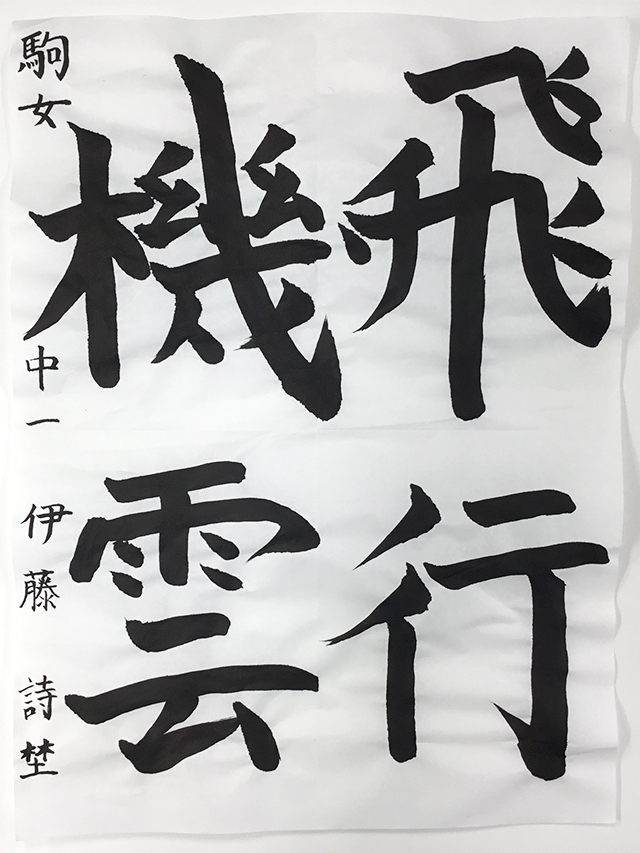 飛行
機雲
駒女 中一 伊藤 詩埜